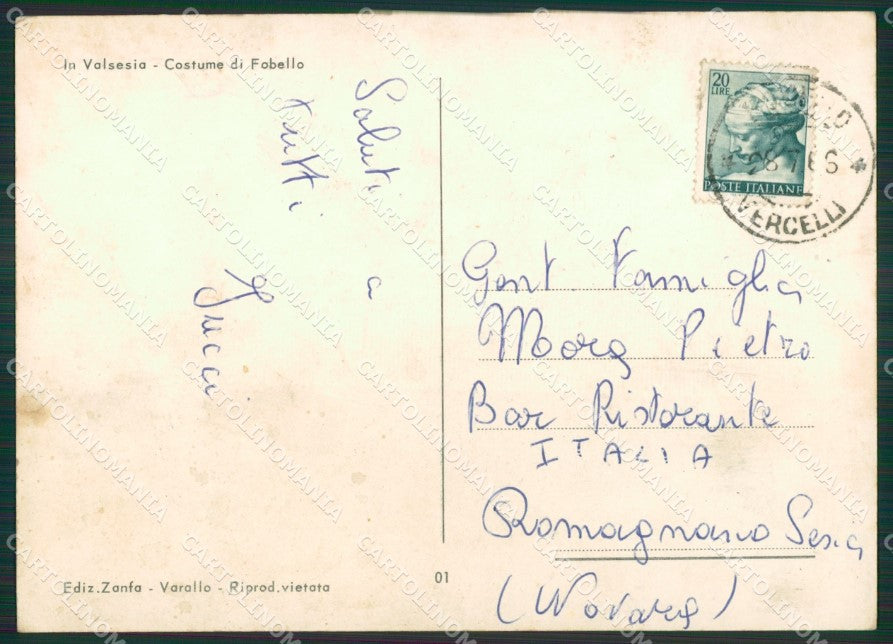 In Valsesia - Costume di Fobello
Saluti a
tutti
20
LIRE
POSTE ITALIANE
VERCELLI
Gent Famiglia
Mora Pietro
Bar Ristorante
ITALIA
Romagnano Sesia
(Novara)
Ediz. Zanfa - Varallo - Riprod. vietata
01
CARTOLINOMANIA